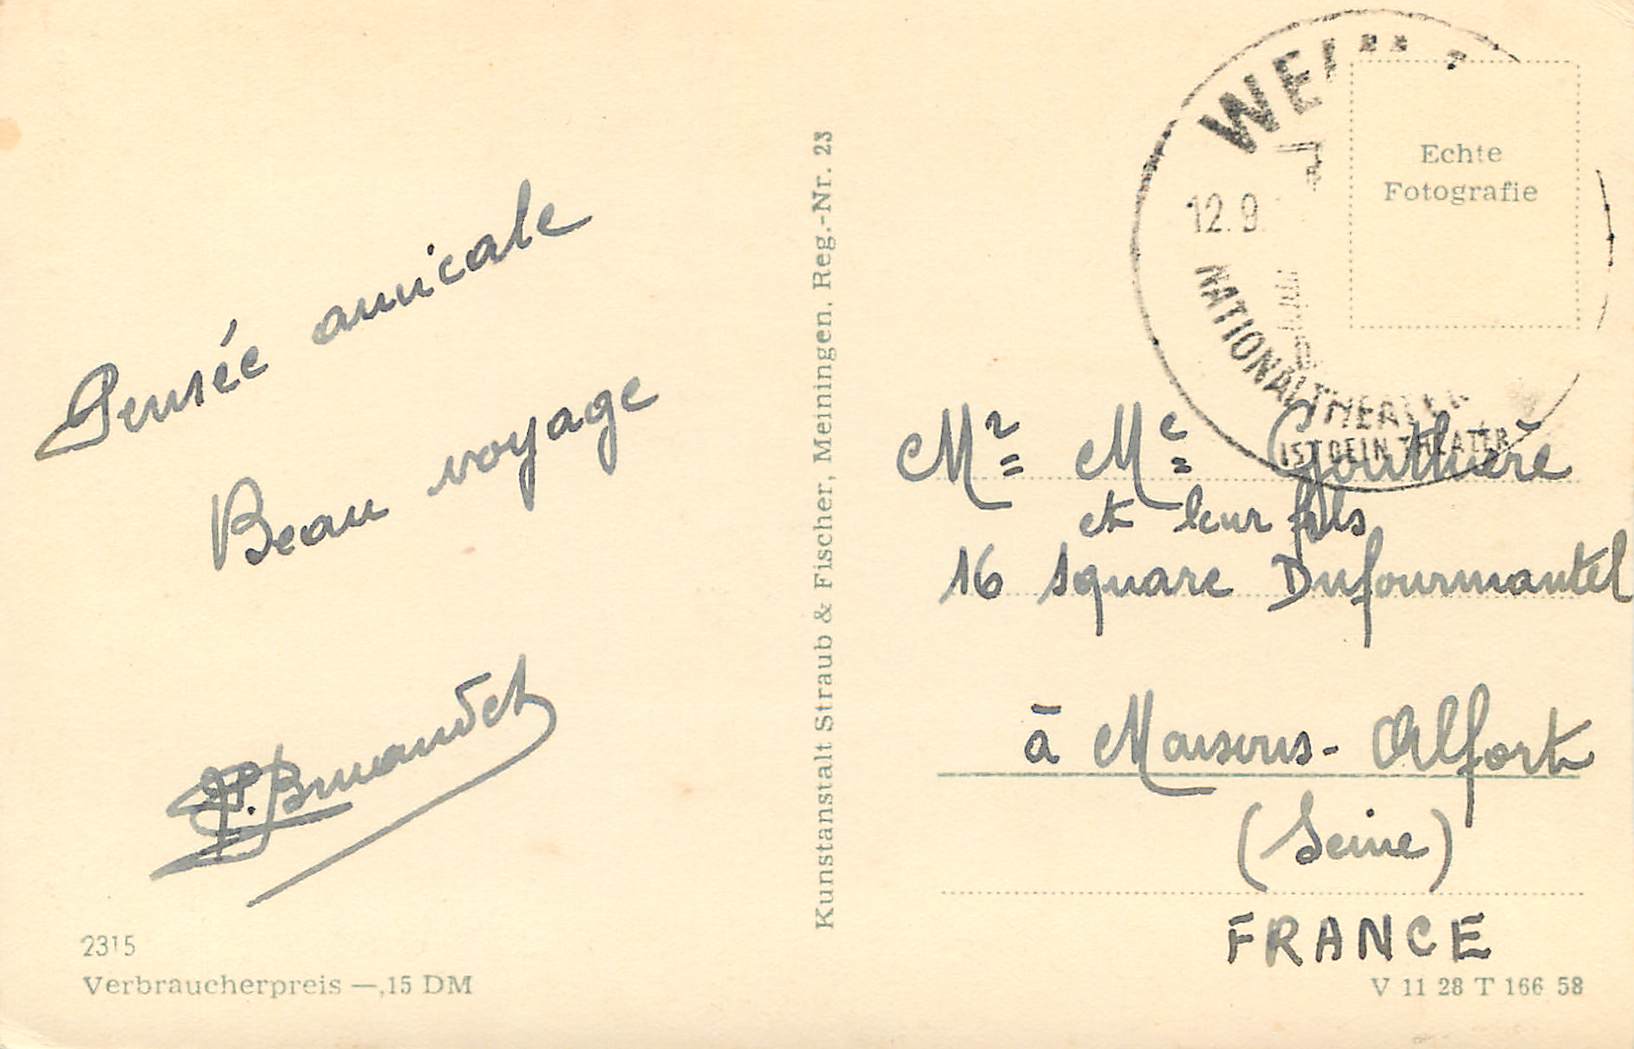 Pensée amicale
Beau voyage
2315
Verbraucherpreis —,15 DM
Kunstanstalt Straub & Fischer, Meiningen. Reg.-Nr. 23
12.9.
NATIONALTHEATER
IST DEIN THEATER
Echte
Fotografie
Mr Me Gouthière
et leur fils
16 square Dufourmantel
à Maisons-Alfort
(Seine)
FRANCE
V 11 28 T 166 58